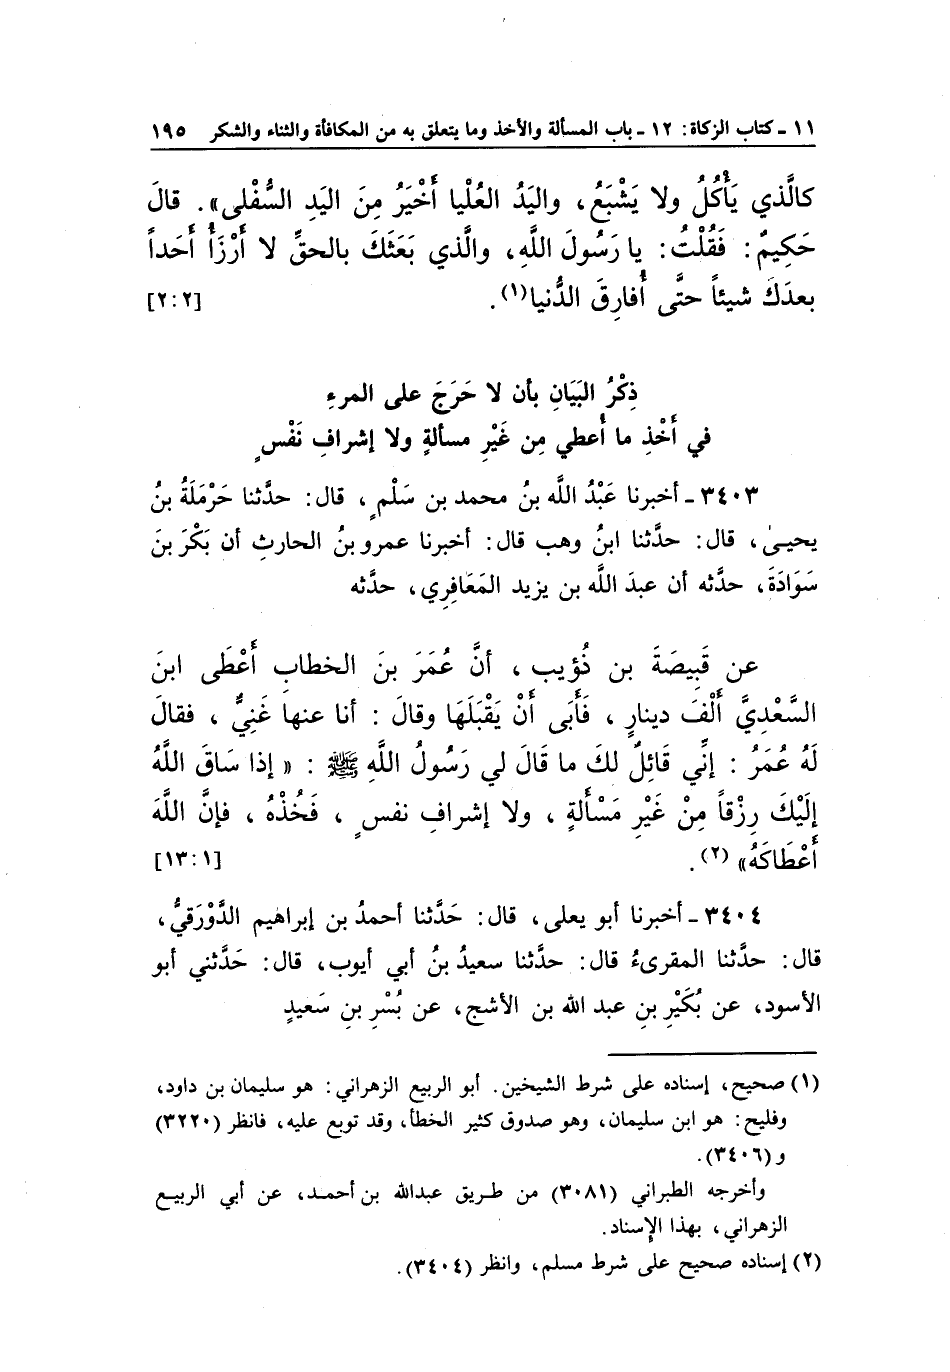 ١١ ـ كتاب الزكاة: ١٢ ـ باب المسألة والأخذ وما يتعلق به من المكافأة والثناء والشكر ١٩٥
كالَّذي يَأْكُلُ ولا يَشْبَعُ، واليَدُ العُلْيا أَخْيَرُ مِنَ اليَدِ السُّفْلى». قالَ
حَكِيمٌ: فَقُلْتُ: يا رَسُولَ اللَّهِ، والَّذي بَعَثَكَ بالحقِّ لا أَرْزَأُ أَحَداً
بعدَكَ شيئاً حتَّى أُفارِقَ الدُّنيا(١). [٢:٢]
ذِكْرُ البَيَانِ بأن لا حَرَجَ على المرءِ
في أَخْذِ ما أُعطي مِن غَيْرِ مسألةٍ ولا إشرافِ نَفْسٍ
٣٤٠٣ ـ أخبرنا عَبْدُ اللَّه بنُ محمد بن سَلْمٍ، قال: حدَّثنا حَرْمَلَةُ بنُ
يحيىٰ، قال: حدَّثنا ابنُ وهب قال: أخبرنا عمرو بنُ الحارثِ أن بَكْرَ بنَ
سَوَادَةَ، حدَّثه أن عبدَ اللَّه بن يزيد المَعَافِري، حدثَّه
عن قَبِيصَةَ بن ذُؤيب، أنَّ عُمَرَ بنَ الخطابِ أَعْطَى ابنَ
السَّعْدِيَّ أَلْفَ دينارٍ، فَأَبَى أَنْ يَقْبَلَهَا وقالَ: أنا عنها غَنِيٌّ، فقالَ
لَهُ عُمَرُ: إنِّي قَائِلٌ لكَ ما قَالَ لي رَسُولُ اللَّهِ ﷺ: «إذا سَاقَ اللَّهُ
إلَيْكَ رِزْقاً مِنْ غَيْرِ مَسْأَلةٍ، ولا إشرافِ نفسٍ، فَخُذْهُ، فإنَّ اللَّهَ
أَعْطَاكَهُ»(٢). [١٣:١]
٣٤٠٤ ـ أخبرنا أبو يعلى، قال: حَدَّثنا أحمدُ بن إبراهيم الدَّوْرَقيُّ،
قال: حدَّثنا المقرىءُ قال: حدَّثنا سعيدُ بنُ أبي أيوب، قال: حَدَّثني أبو
الأسود، عن بُكَيْرِ بنِ عبد الله بن الأشج، عن بُسْرِ بنِ سَعيدٍ
(١) صحيح، إسناده على شرط الشيخين. أبو الربيع الزهراني: هو سليمان بن داود،
وفليح: هو ابن سليمان، وهو صدوق كثير الخطأ، وقد توبع عليه، فانظر (٣٢٢٠)
و (٣٤٠٦).
وأخرجه الطبراني (٣٠٨١) من طريق عبدالله بن أحمد، عن أبي الربيع
الزهراني، بهذا الإسناد.
(٢) إسناده صحيح على شرط مسلم، وانظر (٣٤٠٤).